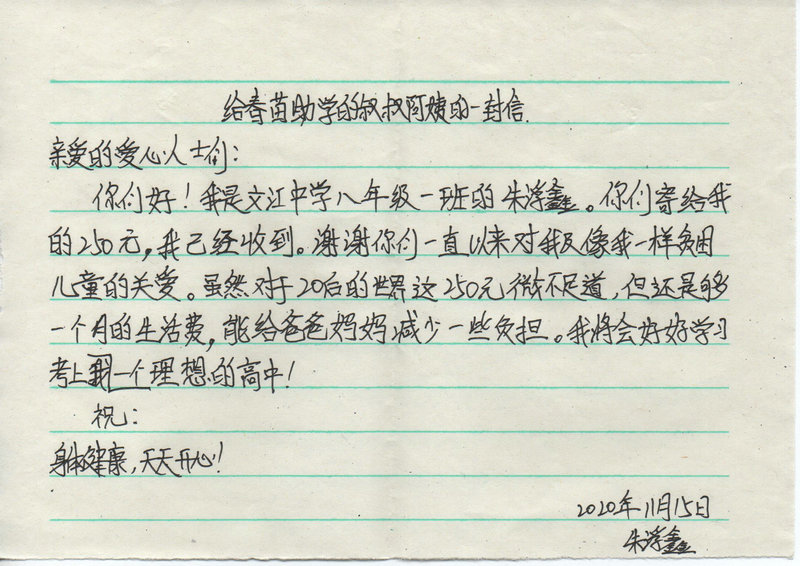 给春苗助学的叔叔阿姨的一封信.
亲爱的爱心人士们：
你们好！我是文江中学八年级一班的朱浮鑫。你们寄给我
的250元，我已经收到。谢谢你们一直以来对我及像我一样贫困
儿童的关爱。虽然对于20后的世界这250元微不足道，但还是够
一个月的生活费，能给爸爸妈妈减少一些负担。我将会好好学习
考上一个理想的高中！
祝：
身体健康，天天开心！
2020年11月15日
朱浮鑫